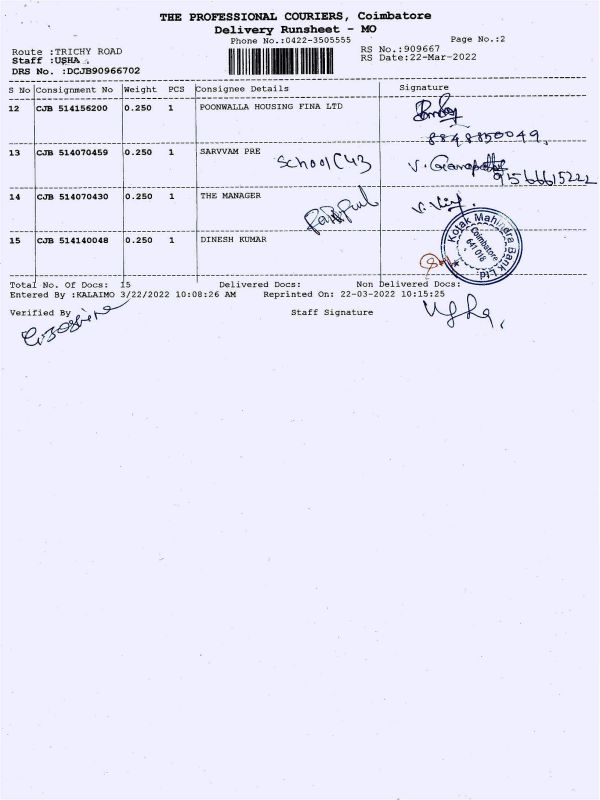 THE PROFESSIONAL COURIERS, Coimbatore
Delivery Runsheet - MO
Phone No.:0422-3505555 Page No.:2
Route :TRICHY ROAD RS No.:909667
Staff :USHA RS Date:22-Mar-2022
DRS No. :DCJB90966702
S No Consignment No Weight PCS Consignee Details Signature
12 CJB 514156200 0.250 1 POONWALLA HOUSING FINA LTD
8848850049
13 CJB 514070459 0.250 1 SARVVAM PRE School V. Ganapathy
9566615222
14 CJB 514070430 0.250 1 THE MANAGER
15 CJB 514140048 0.250 1 DINESH KUMAR
Kotak Mahindra Bank Ltd
Coimbatore
641 018
Total No. Of Docs: 15 Delivered Docs: Non Delivered Docs:
Entered By :KALAIMO 3/22/2022 10:08:26 AM Reprinted On: 22-03-2022 10:15:25
Verified By Staff Signature Usha